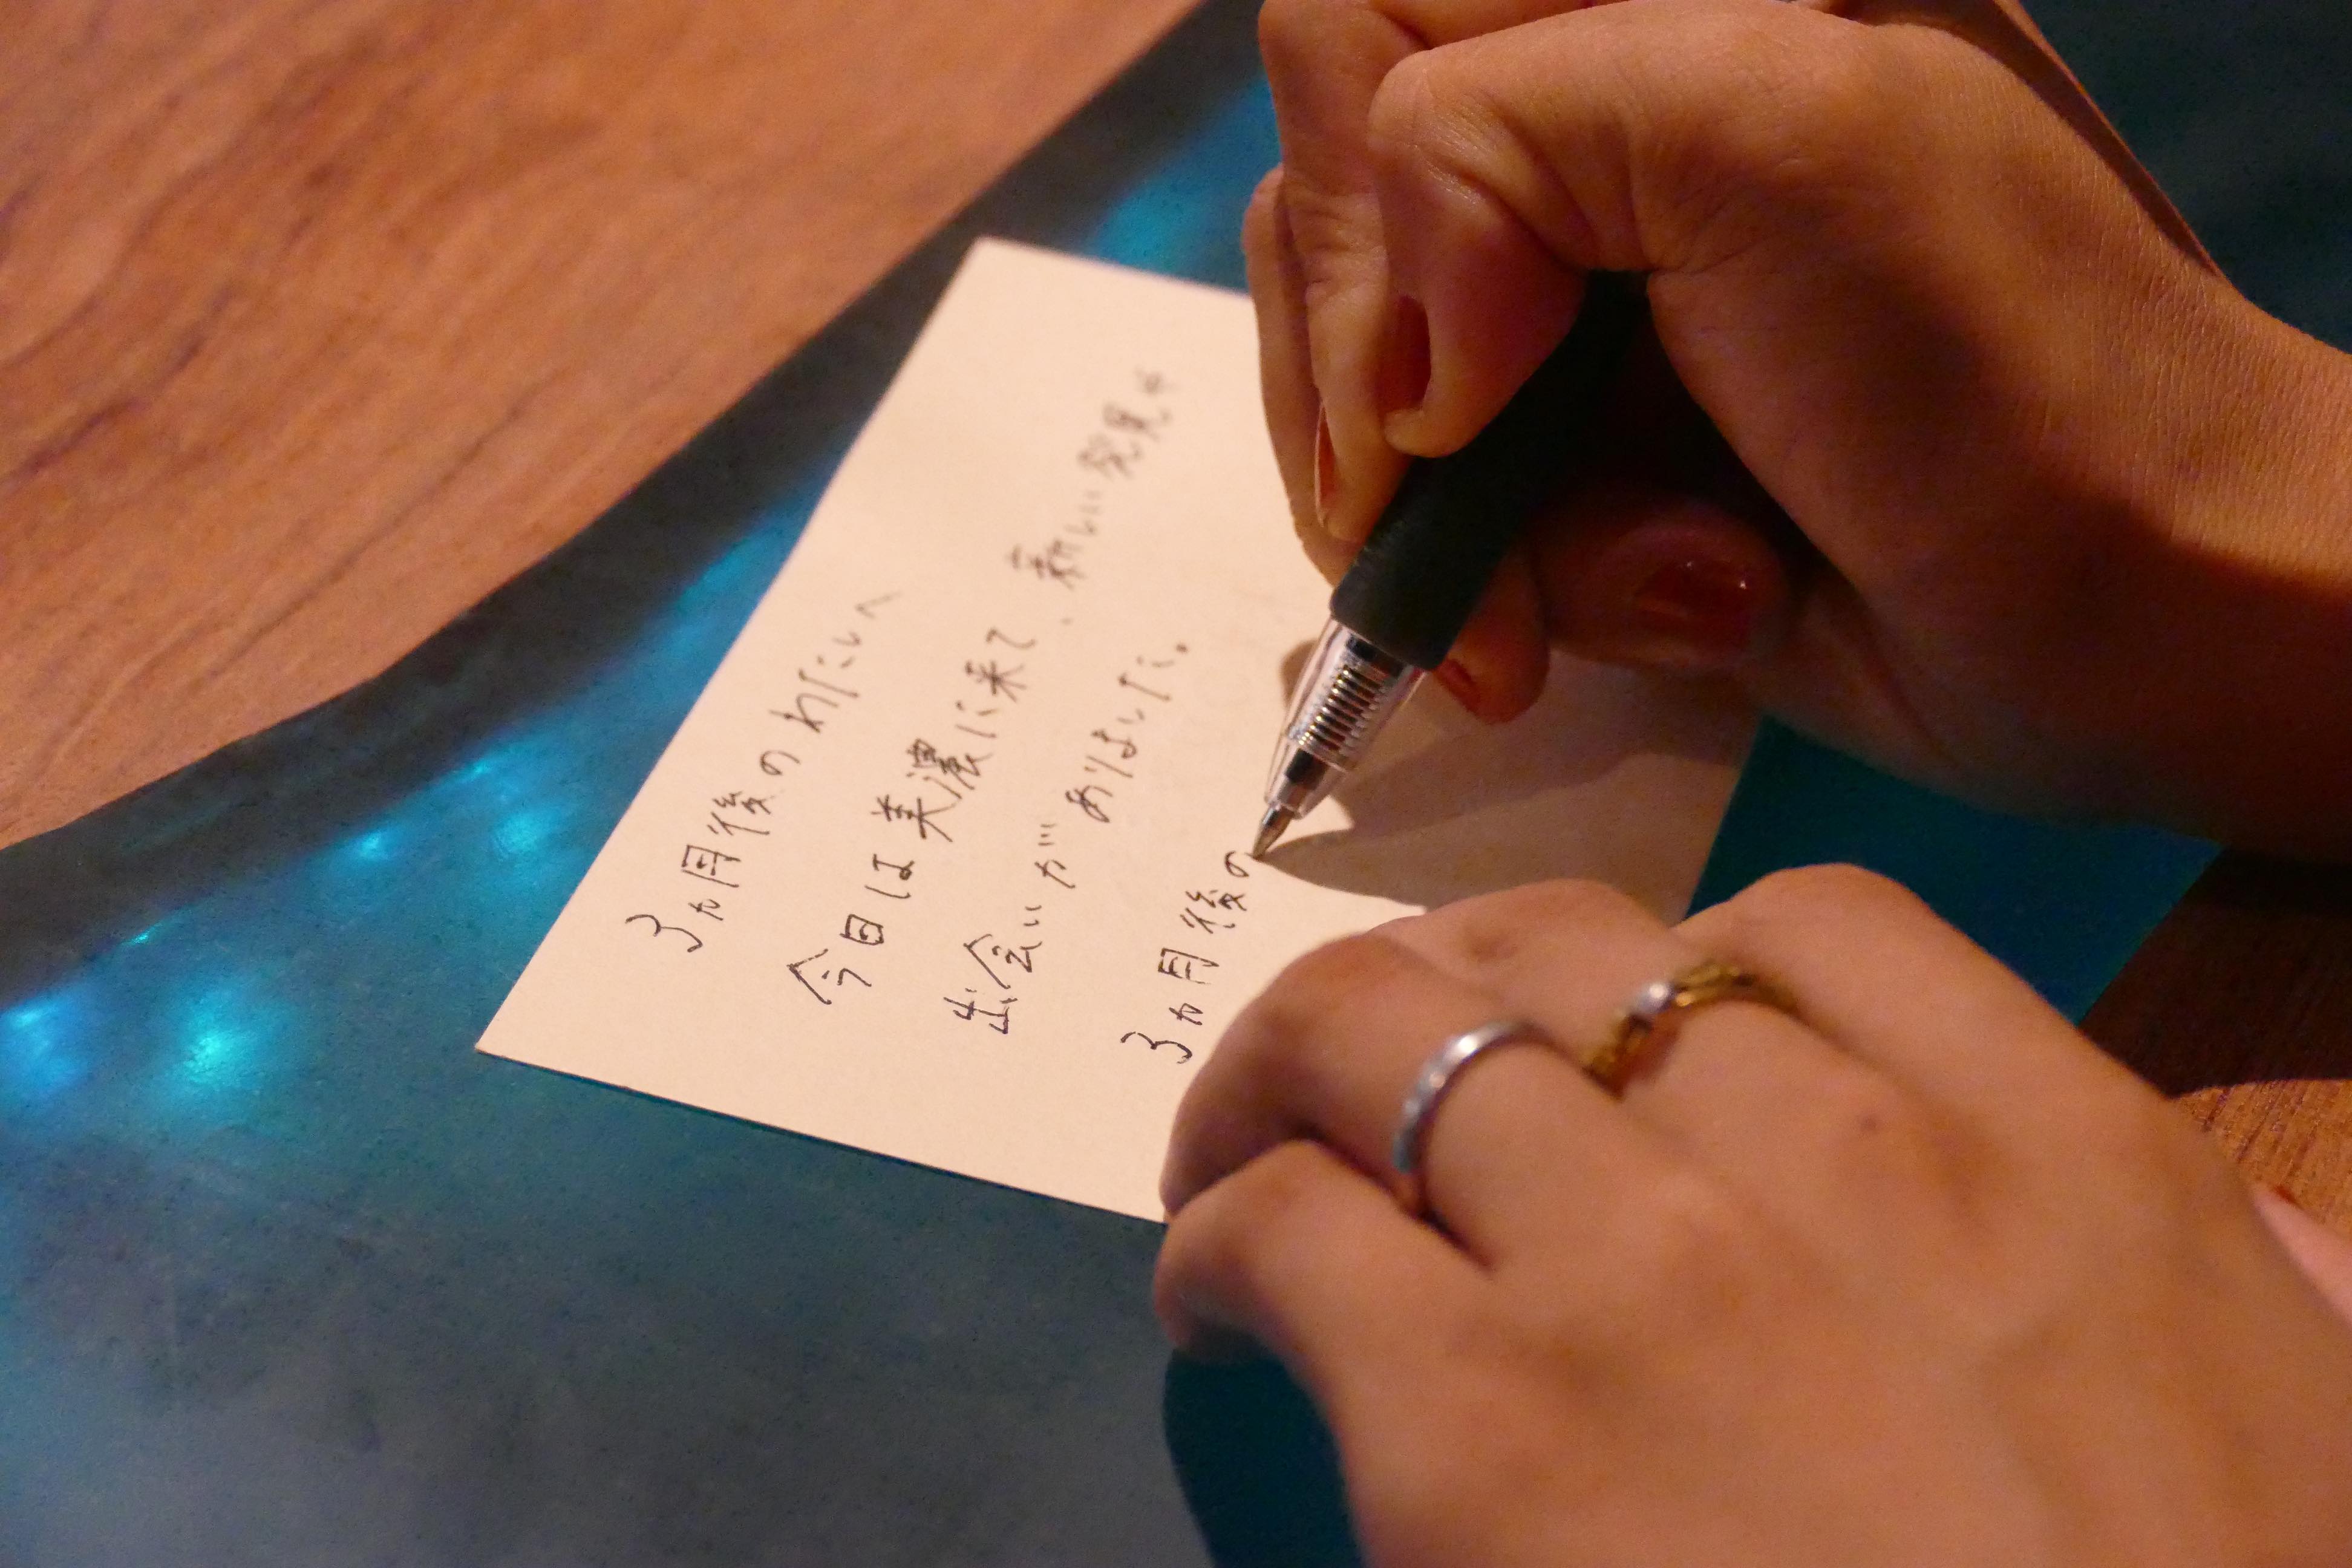 3ヵ月後のわたしへ
今日は美濃に来て、新しい発見や
出会いがありました。
3ヵ月後の